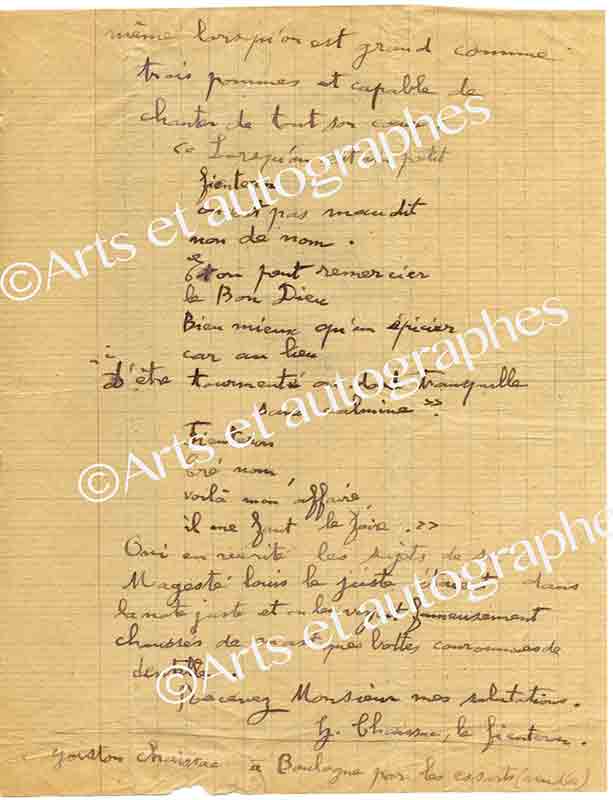 même lorsqu'on est grand comme
trois pommes et capable de
chanter de tout son coeur
ce Lorsqu'on est un petit
fienteur
on est pas maudit
non de nom.
et on peut remercier
le Bon Dieu
Bien mieux qu'un épicier
car au lieu
d'être tourmenté on dort tranquille
sans calmine >>
fienteur
cré nom
voilà mon affaire
il me faut le foire. >>
Oui en vérité les sujets de sa
Magesté louis le juste étaient dans
la note juste et on les fameusement
chaussés de bottes couronnées de
dentelle.
Recevez Monsieur mes salutations.
g. Chaissac, le fienteur.
gaston chaissac à Boulogne par les essarts (vendée)
©Arts et autographes
©Arts et autographes
©Arts et autographes